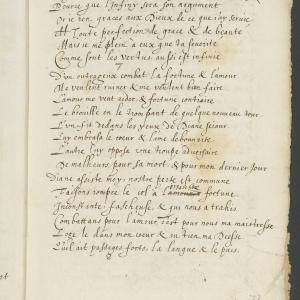 Pource que l'infiny sera son argument
Or ie ren graces aux Dieux de ce que i'ay seruie
Toute perfection de grace & de beauté
Mais ie me plein a eux que ta
Comme sont les vertus aussi est infinie
D'un outrageux combat la fortune & l'amour
Me veulent ruiner & me veulent bien faire
L'amour me veut aider, & fortune contraire
Le brouille en le trompant de quelque nouveau tour.
L'un-fit dedans les yeux de Diane seiour
Luy embrasa le coeur & l'ame debonnaire
L'autre luy oppose une troupe adversaire
De malheurs pour sa mort, & pour mon dernier jour
Diane assiste moy, nostre perte est commune
Faisons rompre le col a fortune
Inconstante, fascheuse, & qui nous a trahis
Combattans pour l'amour c'est pour nous ma maistresse
Loge le dans mon coeur & tu tien ma Deesse
Qu'il ait passages forts, la langue & le pais.